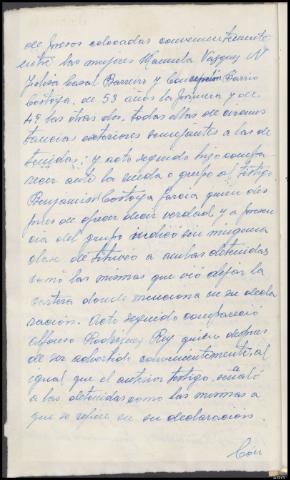 de presos colocadas convenientemente
entre las mujeres Manuela Vazquez Nª
Julia Casal Barreiro y Concepción Barrio
Costoya, de 53 años la primera y de
49 las otras dos, todas ellas de circuns
tancias exteriores semejantes a las de
tenidas; y acto seguido hizo compa
recer ante la rueda o grupo al testigo
Benjamin Costoya Garcia quien des
pues de ofrecer decir verdad y a presen
cia del grupo indicó sin ninguna
clase de titubeo a ambas detenidas
como las mismas que vió dejar la
cestera donde menciona en su decla
ración. Acto seguido compareció
Alfonso Rodriguez Rey quien despues
de ser advertido convenientemente, al
igual que el anterior testigo, señaló
a las detenidas como las mismas a
que se refiere en su declaración.
Con